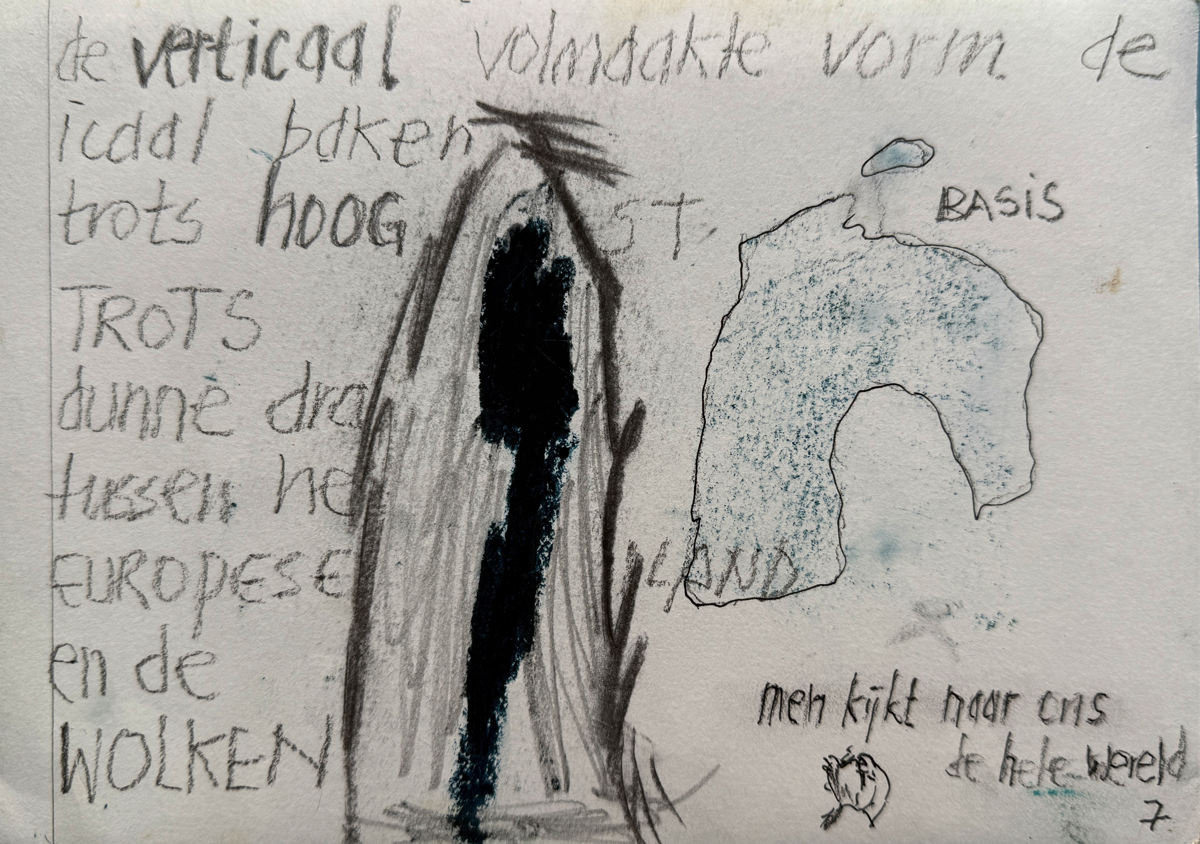 de verticaal volmaakte vorm de
icaal baken
trots HOOG ST.
BASIS
TROTS
dunne dra
tussen he
EUROPESE LAND
en de
WOLKEN
men kijkt naar ons
de hele wereld
7